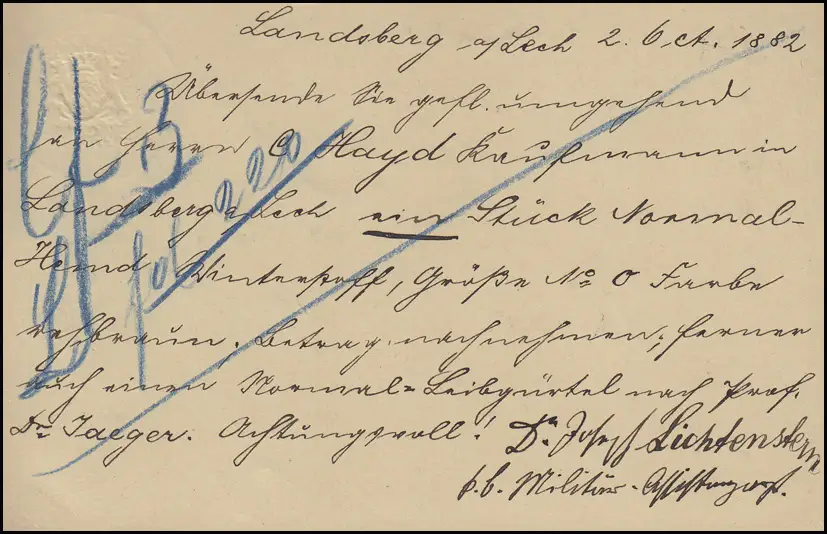 Landsberg a/Lech 2. Oct. 1882
Übersende Sie gefl. umgehend
an Herrn C. Hayd Kaufmann in
Landsberg a/Lech ein Stück Normal-
Hemd Winterstoff, Größe No 0 Farbe
rehbraun. Betrag nachnehmen; ferner
auch einen Normal=Leibgürtel nach Prof.
Dr. Jaeger. Achtungsvoll! Dr. Josef Lichtenstern
k. b. Militär-Assistenzarzt.
3
fol 220